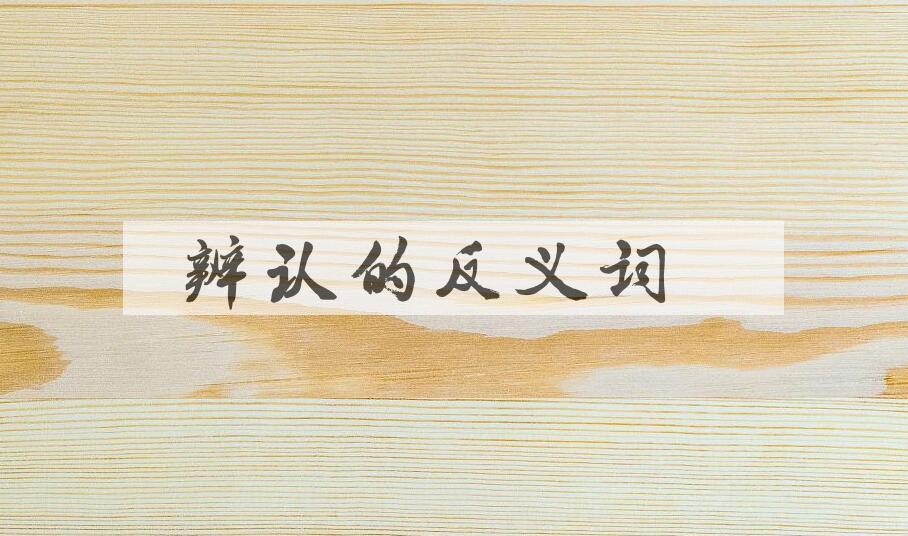 辨认的反义词